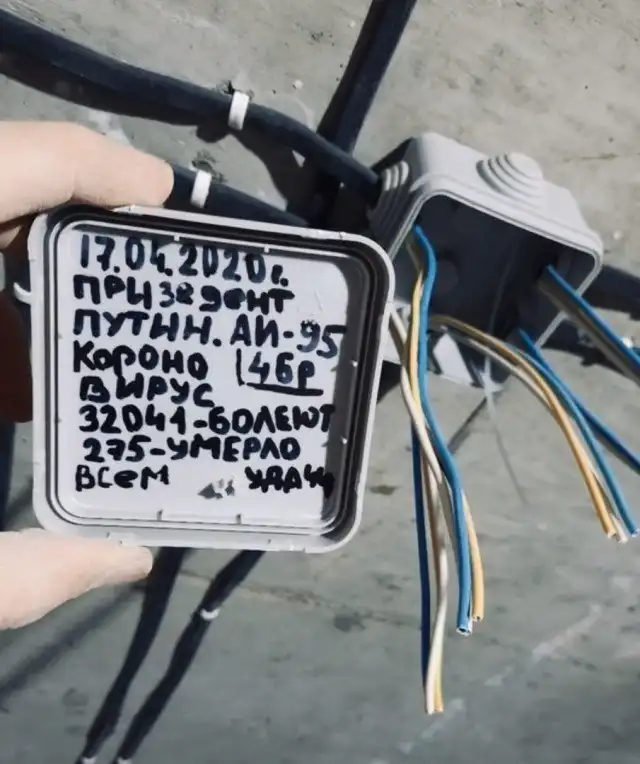 17.04.2020г.
ПРИЗЕДЕНТ
ПУТИН. АИ-95
КОРОНО 46р
ВИРУС
32041-БОЛЕЮТ
275-УМЕРЛО
ВСЕМ УДАЧИ